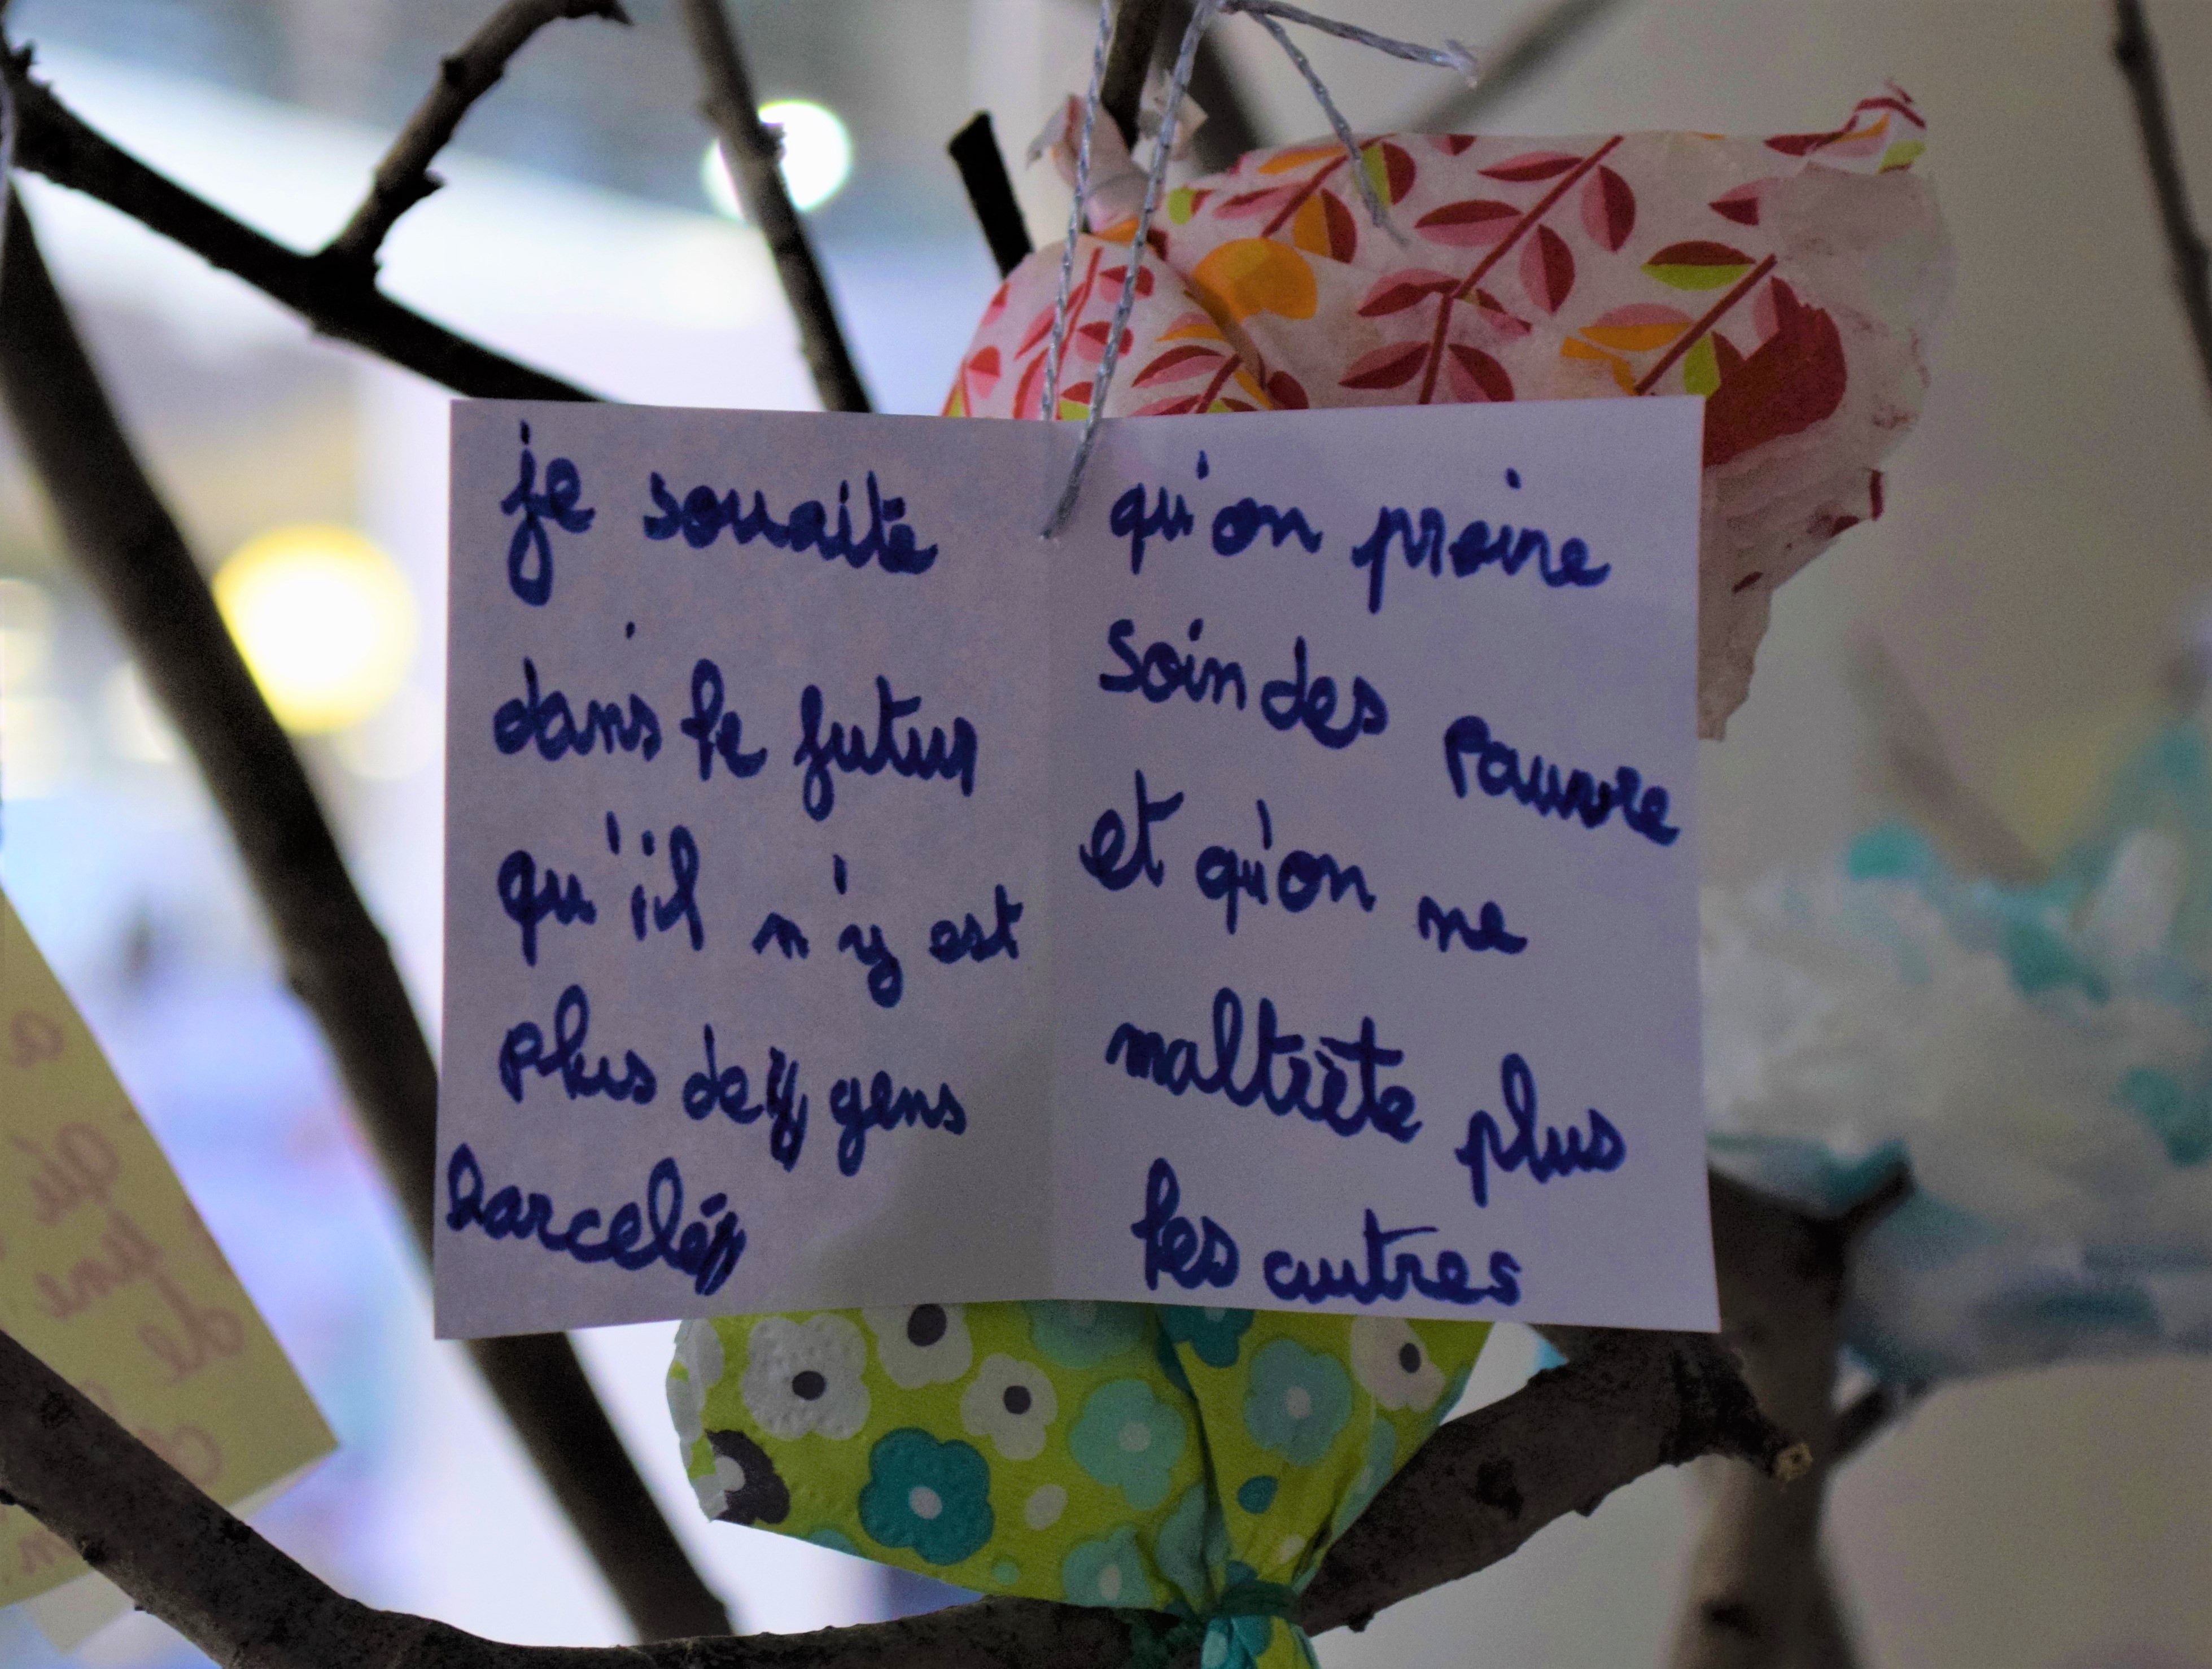 je souaite
dans le futur
qu'il n'y est
plus de gens
harcelé
qu'on proine
soin des pauvre
et qu'on ne
maltrète plus
les autres
a
qu
une
de